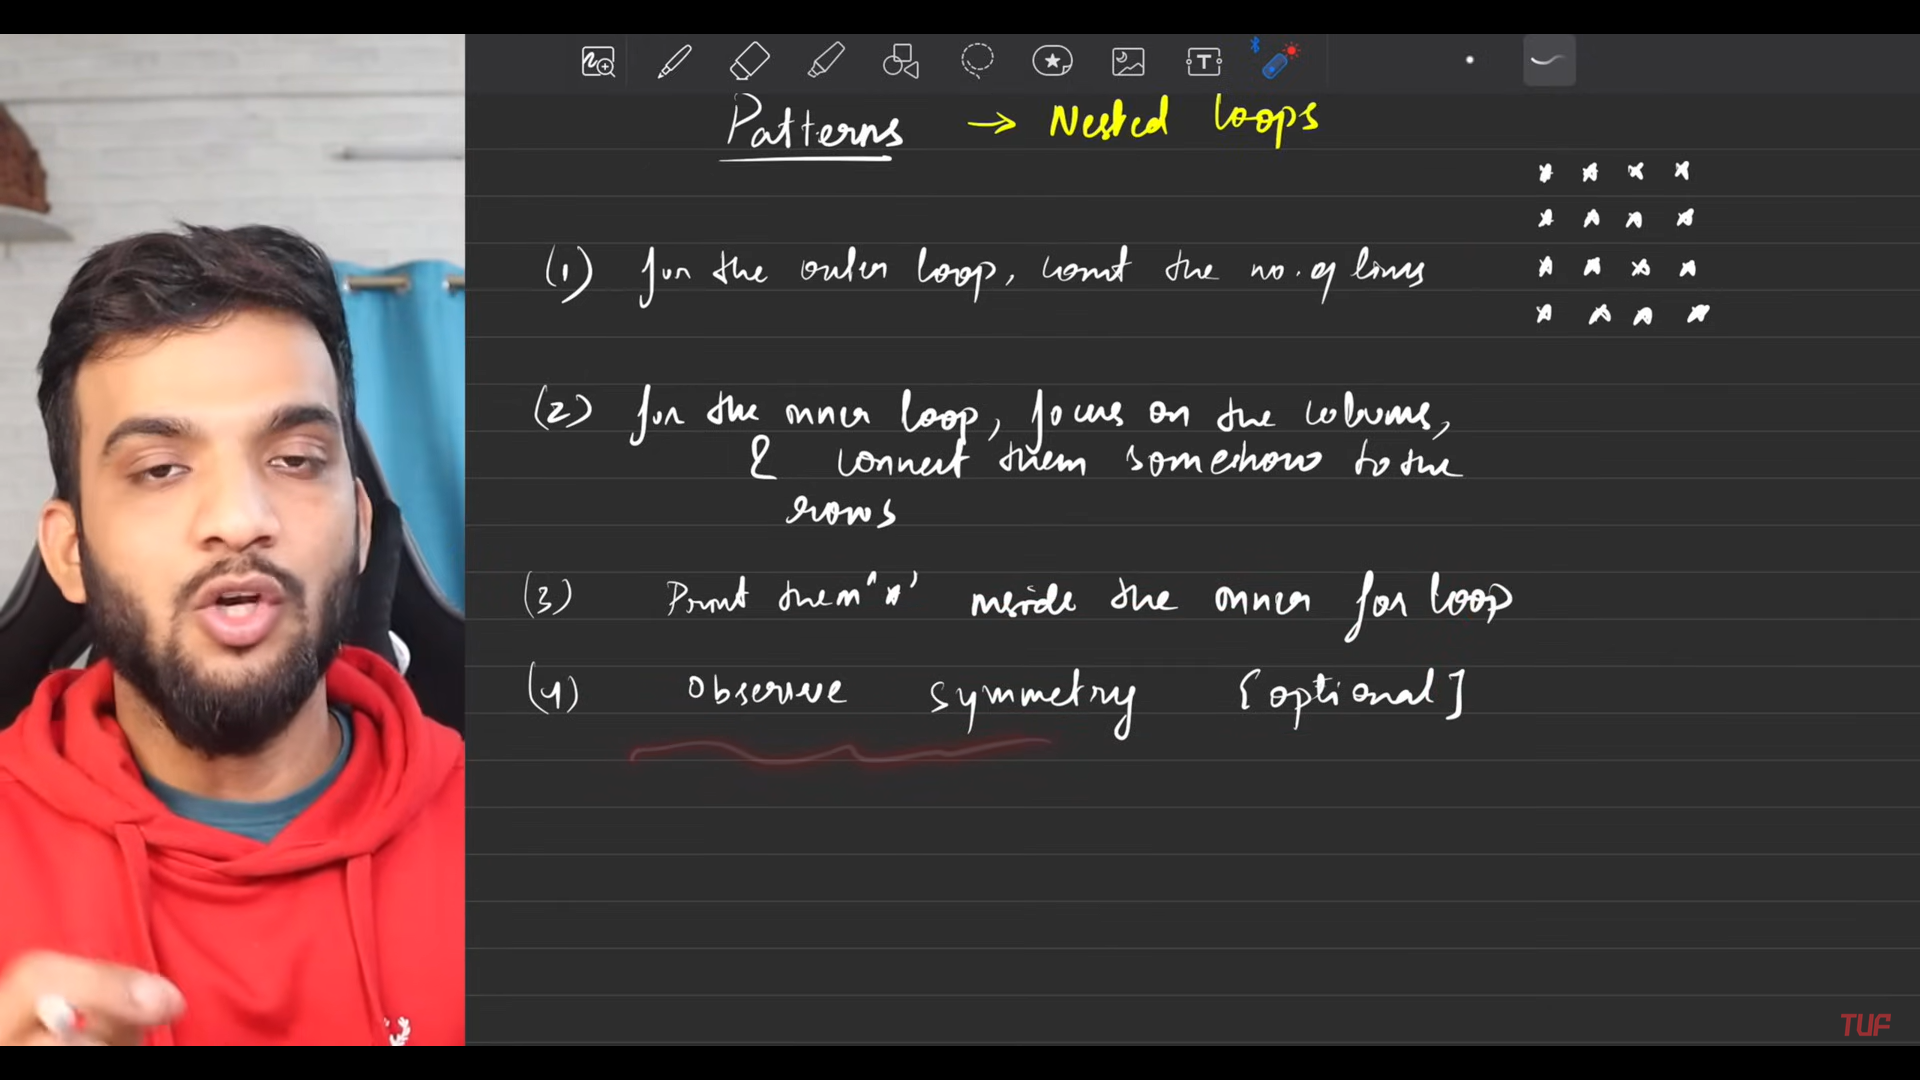 Patterns → Nested loops
(1) for the outer loop, count the no. of lines
(2) for the inner loop, focus on the columns,
& connect them somehow to the
rows
(3) Print them '*' inside the inner for loop
(4) Observe symmetry [optional]
* * * *
* * * *
* * * *
* * * *
T
TUF